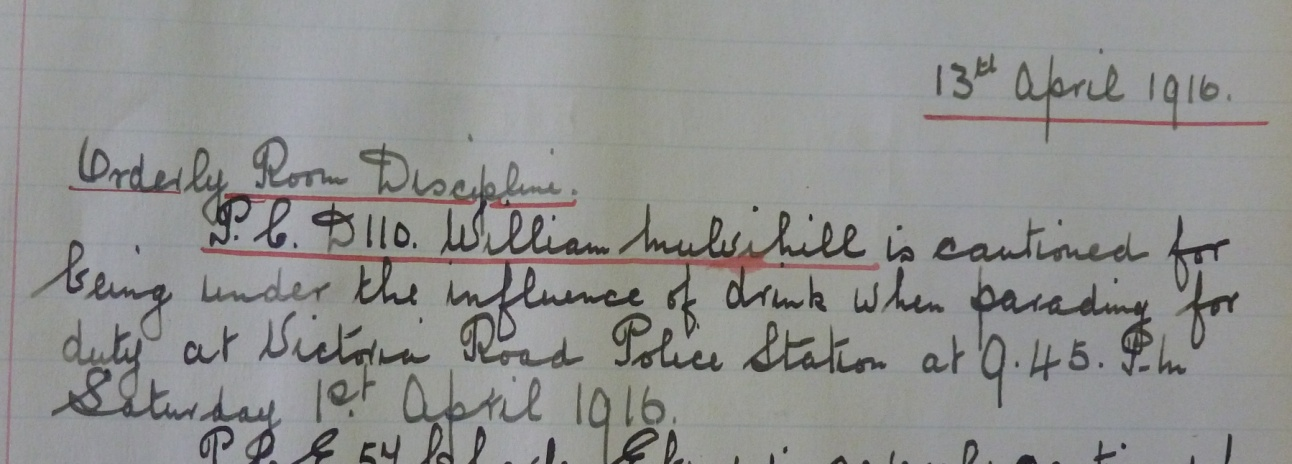 13th April 1916.
Orderly Room Discipline.
P.C. D110. William Mulvihill is cautioned for
being under the influence of drink when parading for
duty at Victoria Road Police Station at 9.45. P.m
Saturday 1st April 1916.
P.C. E 54